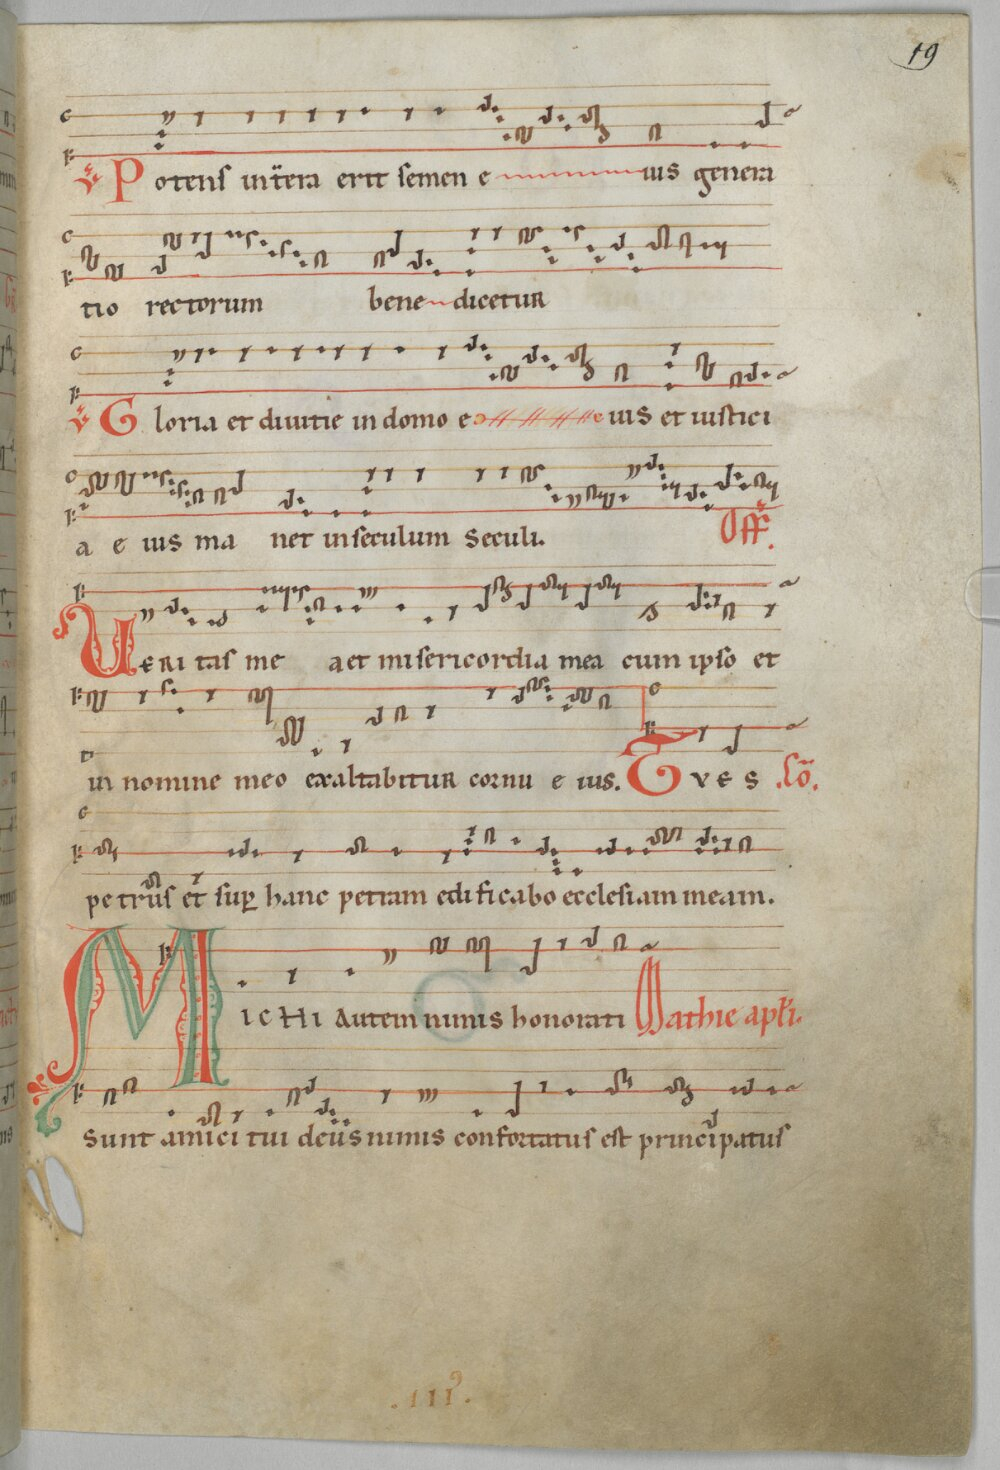 19
℣ Potens in t̄era erit semen e ius genera
tio rectorum bene dicetur
℣ Gloria et divitie in domo e ius et iustici
a e ius ma net in seculum seculi.
Off̄.
Veritas me a et misericordia mea cum ipso et
in nomine meo exaltabitur cornu e ius. Tv es .Co̅.
petrus et sup hanc petram edificabo ecclesiam meam.
Michi autem nimis honorati Mathie apl̄i.
sunt amici tui deus nimis confortatus est principatus
.III⁹.